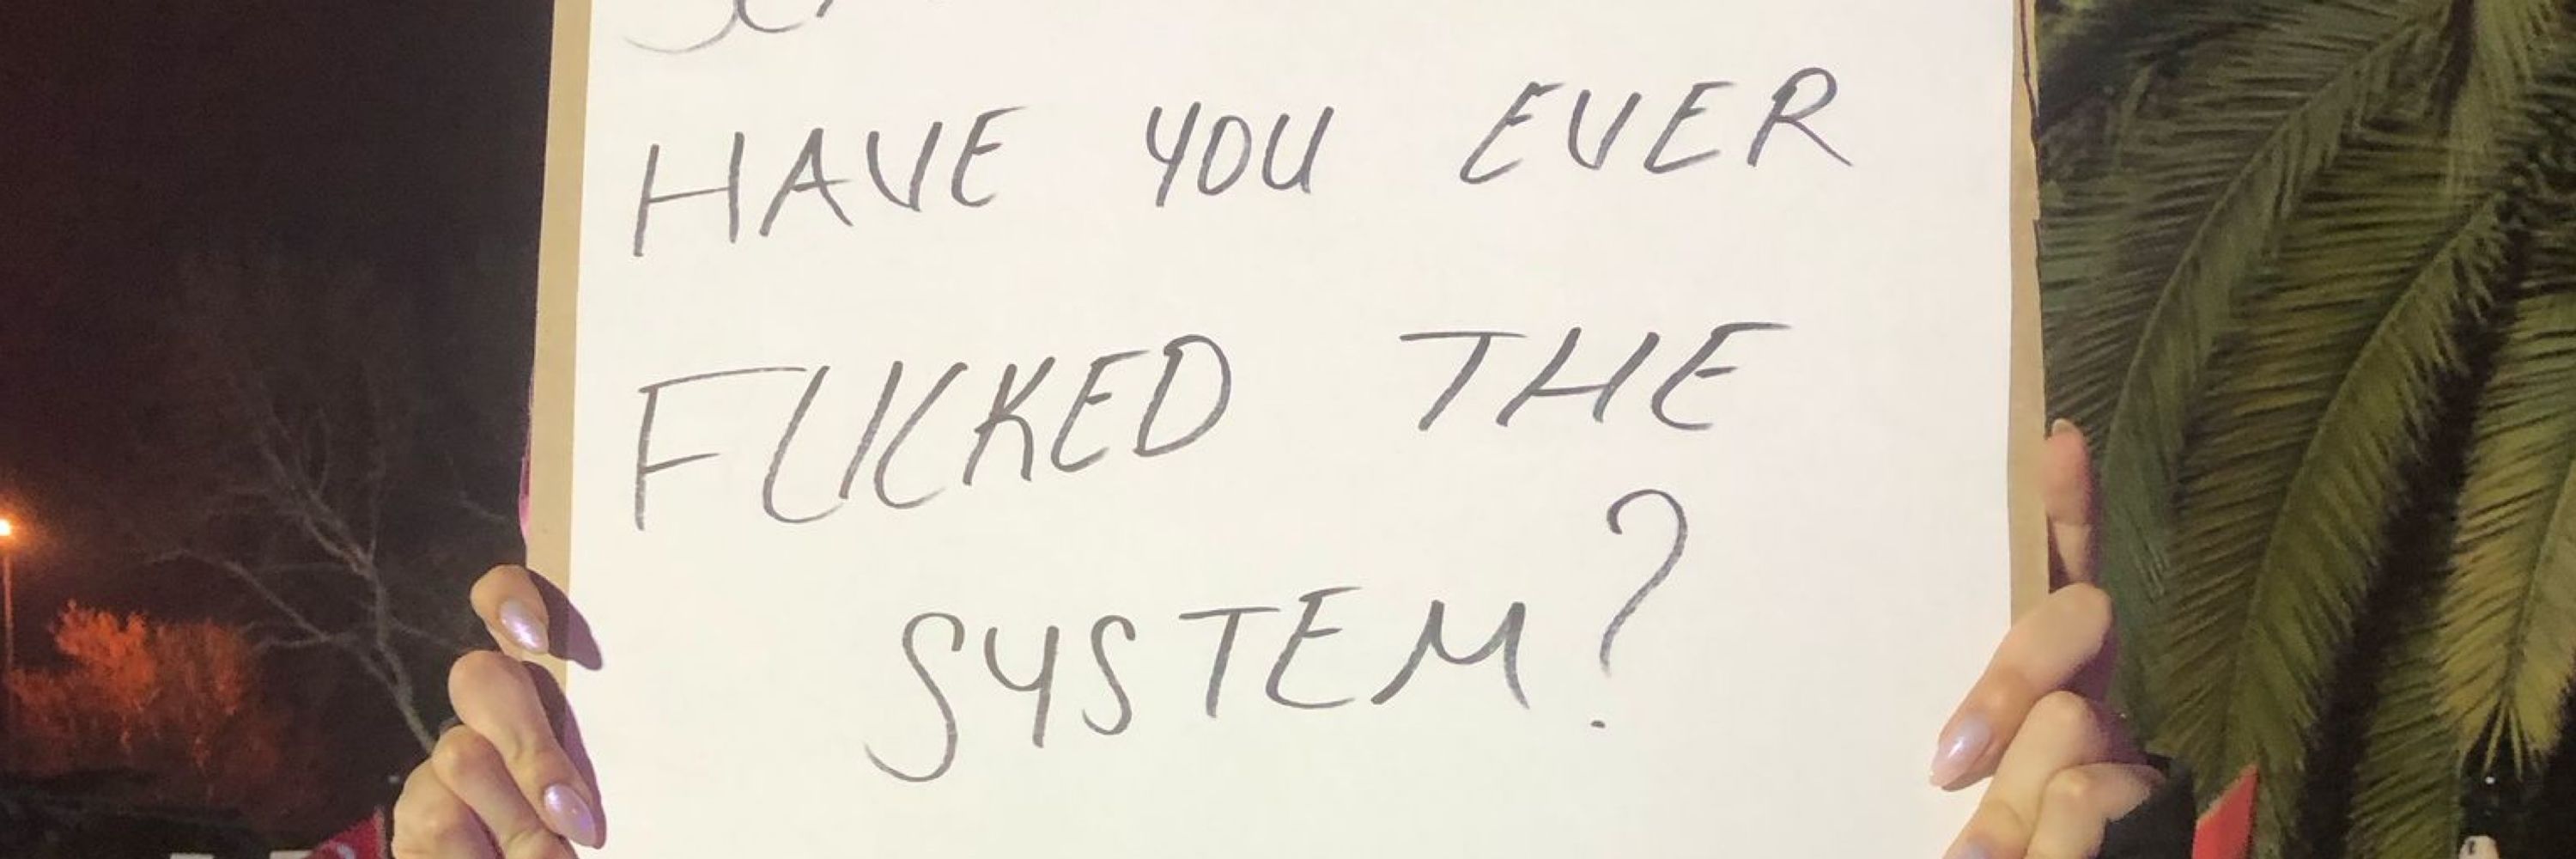 HAVE YOU EVER
FUCKED THE
SYSTEM?